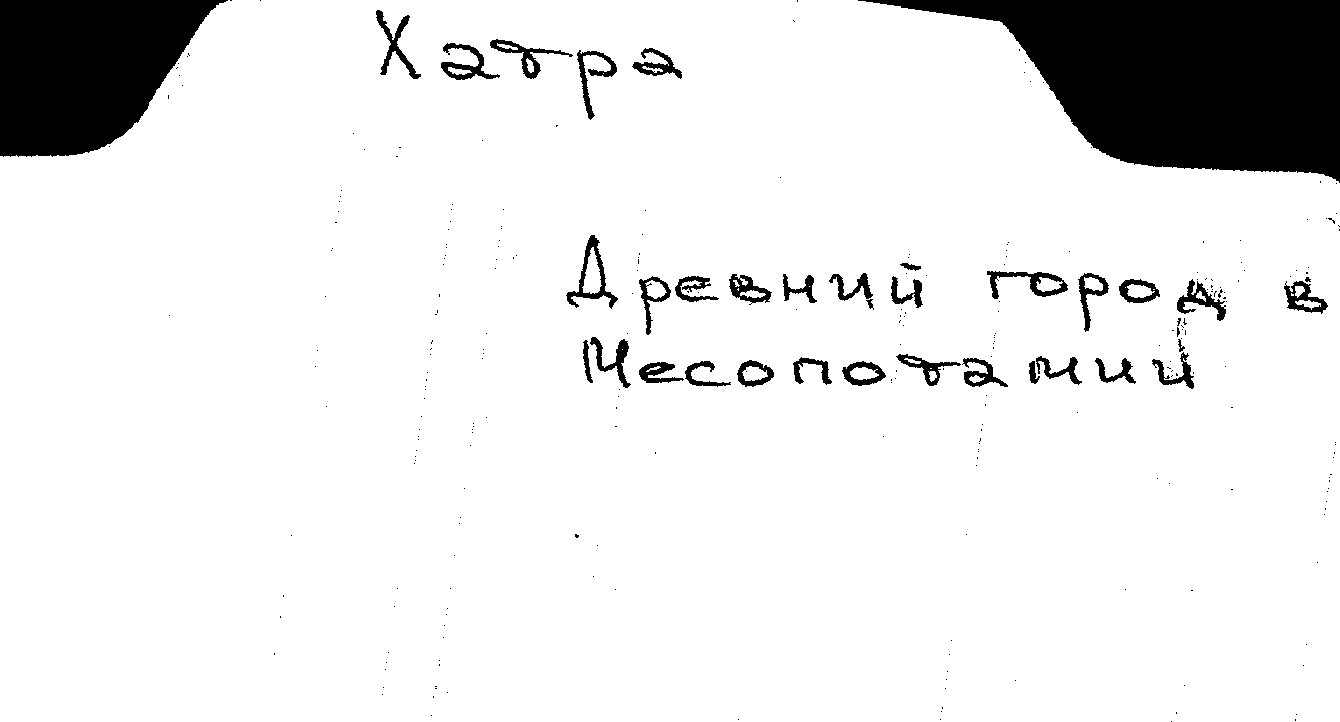 Хатра
Древний город в
Месопотамии